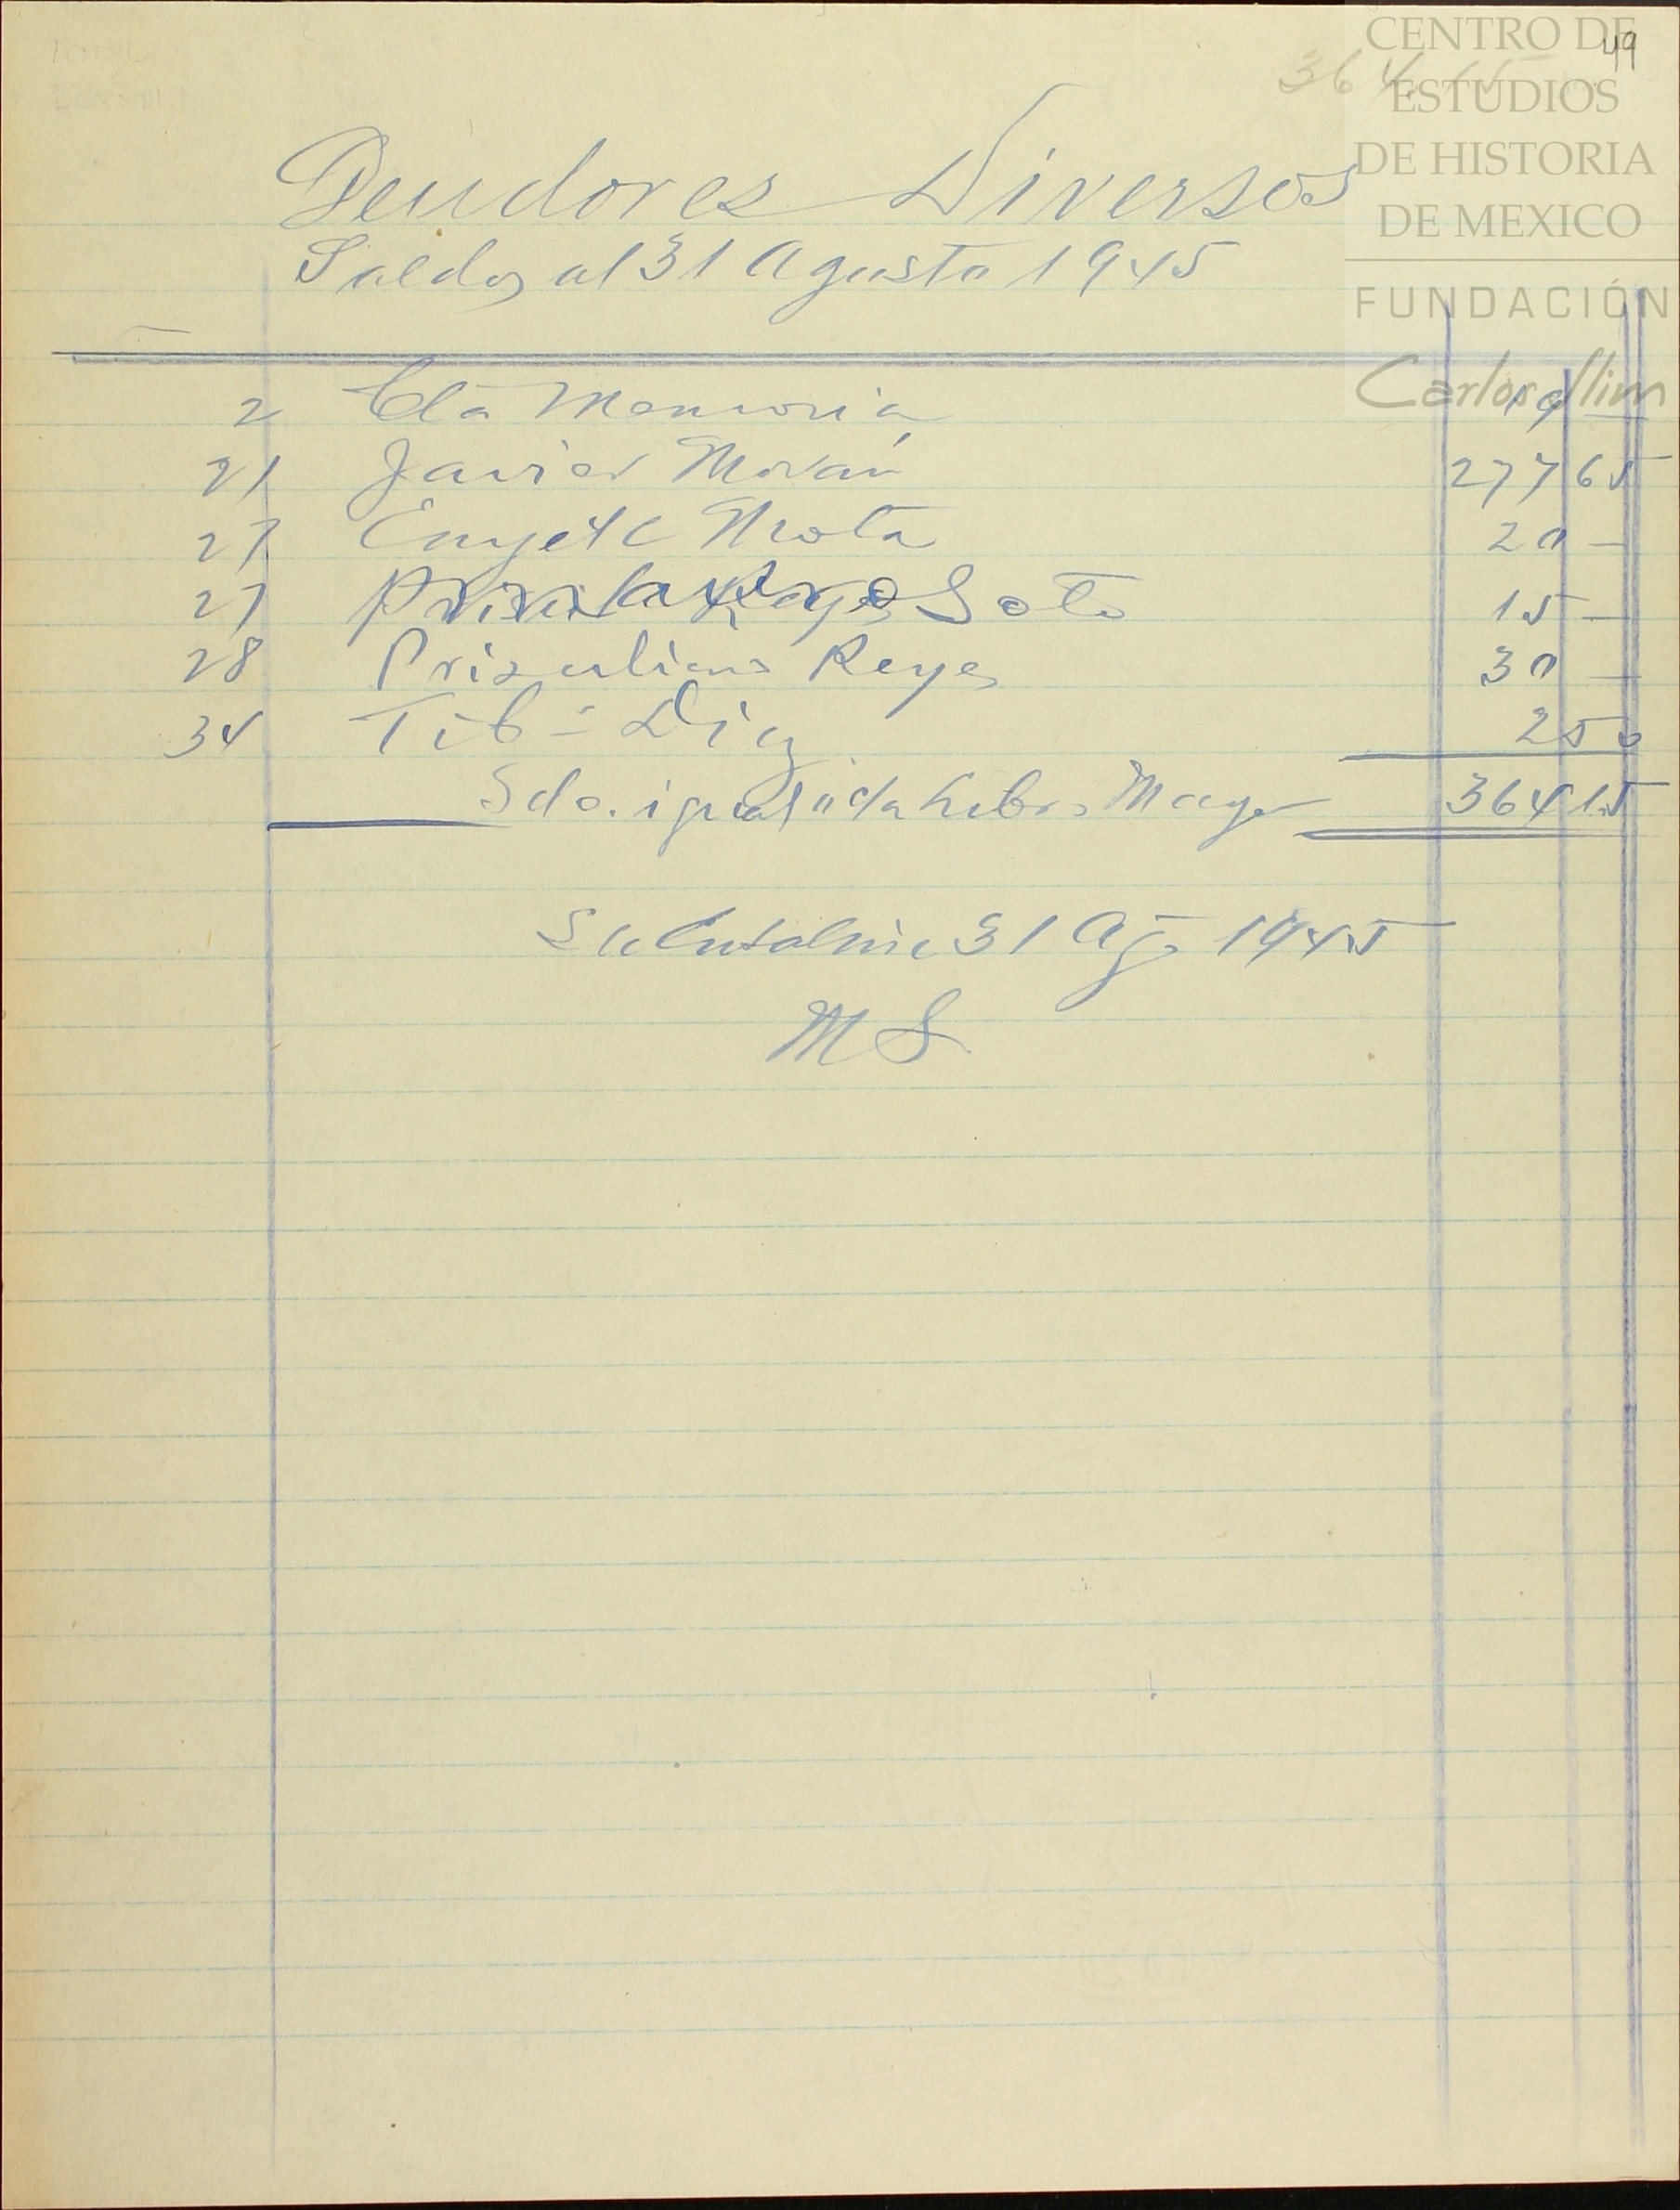 49
364.15
CENTRO DE
ESTUDIOS
DE HISTORIA
DE MEXICO
FUNDACIÓN
Carlos Slim
Deudores Diversos
Saldos al 31 Agosto 1945
2 Cta Memoria 19 —
21 Javier Morán 277 65
27 Mota 20 —
27 Soto 15 —
28 Prisciliano Reyes 30 —
34 Tib = Diaz 2 50
Sdo. igual Libro Mayor 364 15
31 Ago 1945
MS